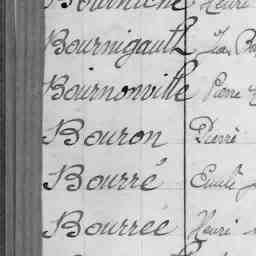 Bourniche Henri
Bournigault Jean
Bournonville Pierre
Bouron Pierre
Bourré Emile
Bourrée Henri